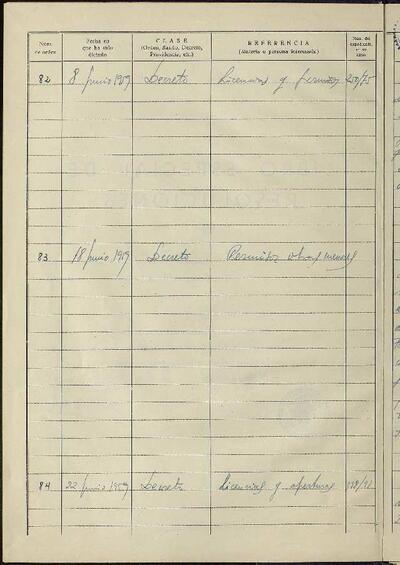 Núm. de orden
Fecha en que ha sido dictado
CLASE (Orden, Bando, Decreto, Providencia, etc.)
REFERENCIA (Materia o persona interesada)
Núm. de expediente, en su caso
82 8 Junio 1959 Decreto Licencias y permisos
83 18 Junio 1959 Decreto Permisos obras menores
84 22 Junio 1959 Decreto Licencias y aperturas